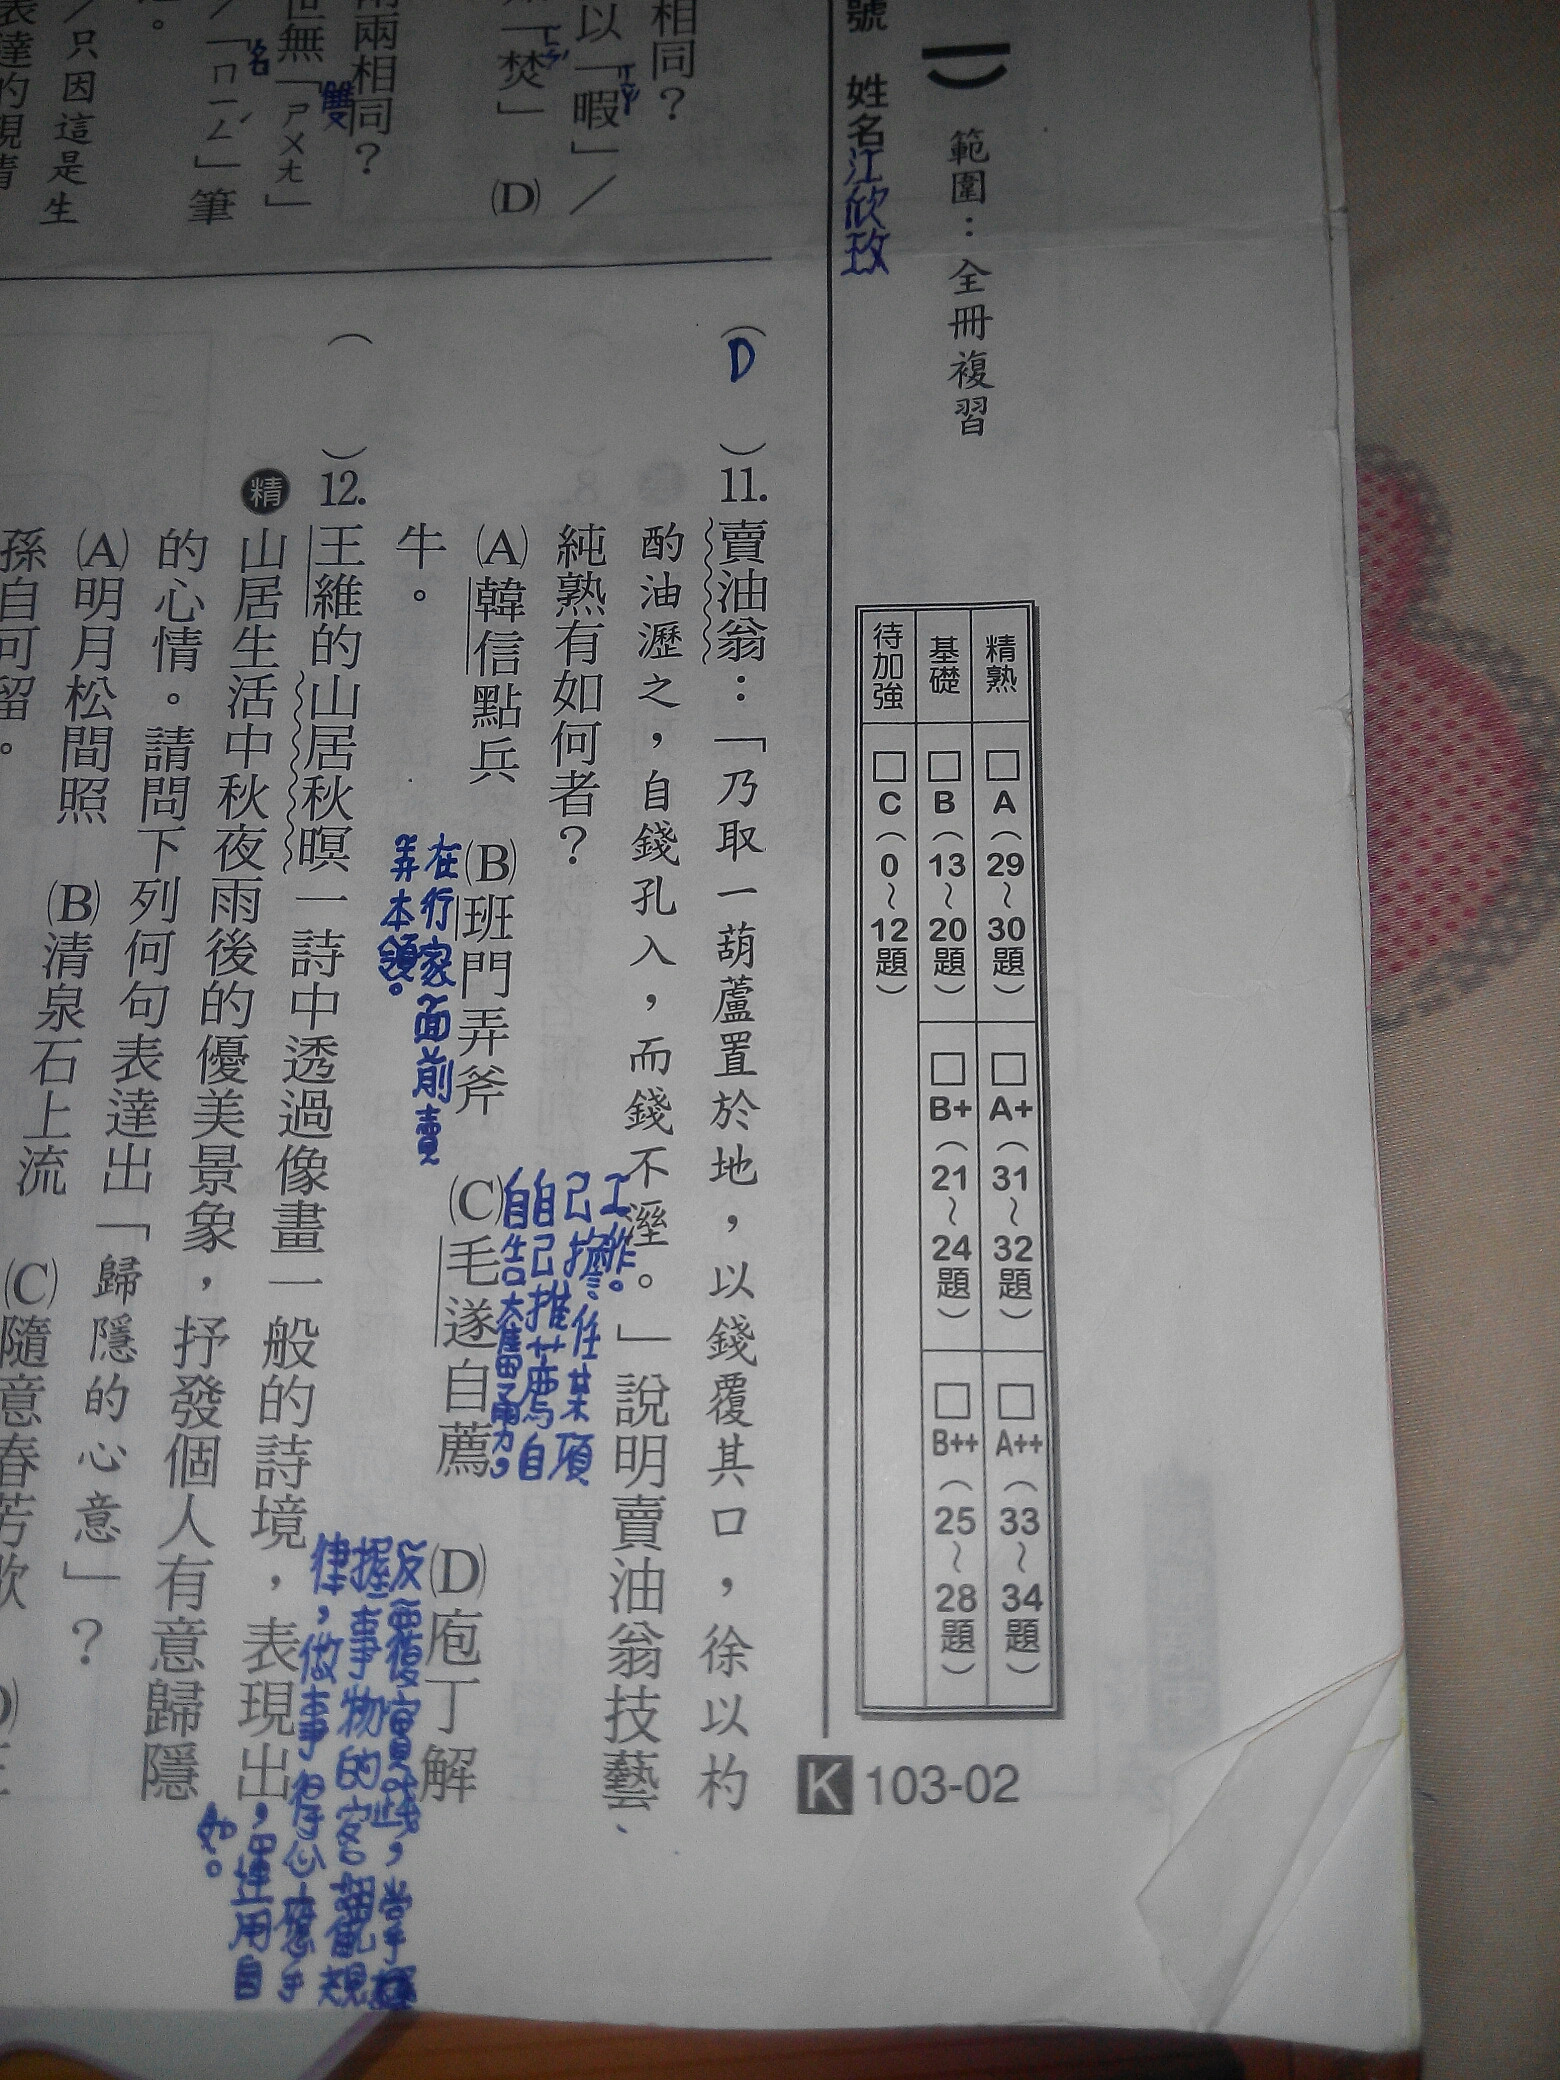 號 姓名江欣玫
範圍：全冊複習
精熟 □A（29～30題） □A+（31～32題） □A++（33～34題）
基礎 □B（13～20題） □B+（21～24題） □B++（25～28題）
待加強 □C（0～12題）
K 103-02
相同？
以「暇」／
「焚」 (D)
兩相同？
雙
無「ㄕㄨㄤ」
／「ㄇㄧㄥˊ」筆
名
／只因這是生
（D）11.賣油翁：「乃取一葫蘆置於地，以錢覆其口，徐以杓
酌油瀝之，自錢孔入，而錢不溼。」說明賣油翁技藝
純熟有如何者？
(A)韓信點兵 (B)班門弄斧 (C)毛遂自薦 (D)庖丁解
牛。
在行家面前賣
弄本領。
自告奮勇，
自己推薦自
己擔任某項
工作。
反覆實踐，掌
握事物的客觀規
律，做事得心應手
，運用自
如。
（ ）12.王維的山居秋暝一詩中透過像畫一般的詩境，表現出
精 山居生活中秋夜雨後的優美景象，抒發個人有意歸隱
的心情。請問下列何句表達出「歸隱的心意」？
(A)明月松間照 (B)清泉石上流 (C)隨意春芳歇
孫自可留。